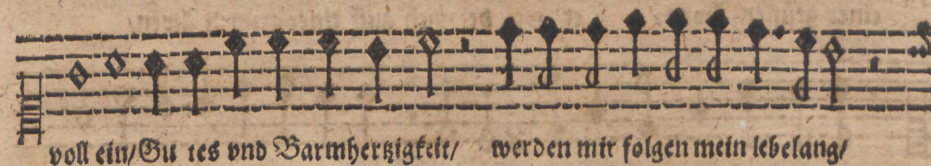 voll ein/Gu tes vnd Barmhertzigkeit/ werden mir folgen mein lebelang/